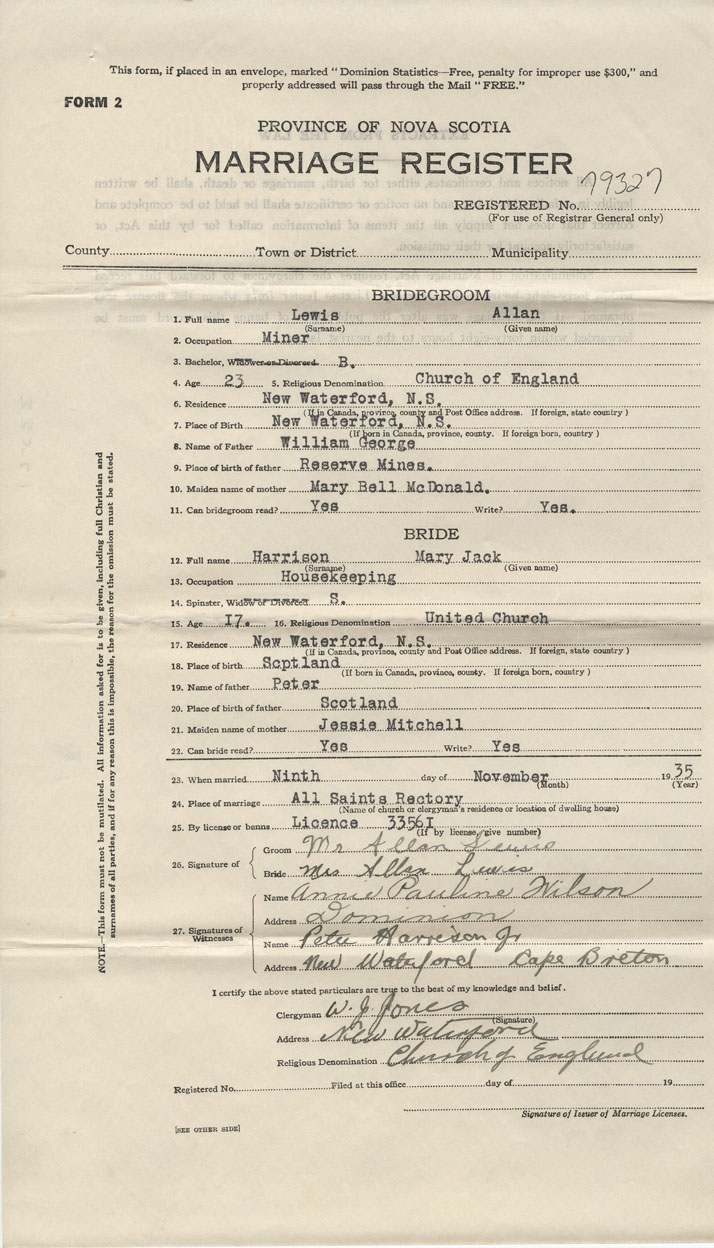 This form, if placed in an envelope, marked "Dominion Statistics—Free, penalty for improper use $300," and
properly addressed will pass through the Mail "FREE."
FORM 2
PROVINCE OF NOVA SCOTIA
MARRIAGE REGISTER
REGISTERED No. 79327
(For use of Registrar General only)
County Town or District Municipality
BRIDEGROOM
1. Full name Lewis Allan
(Surname) (Given name)
2. Occupation Miner
3. Bachelor, Widower or Divorced B.
4. Age 23 5. Religious Denomination Church of England
6. Residence New Waterford, N.S.
(If in Canada, province, county and Post Office address. If foreign, state country)
7. Place of Birth New Waterford, N.S.
(If born in Canada, province, county. If foreign born, country)
8. Name of Father William George
9. Place of birth of father Reserve Mines.
10. Maiden name of mother Mary Bell McDonald.
11. Can bridegroom read? Yes Write? Yes.
BRIDE
12. Full name Harrison Mary Jack
(Surname) (Given name)
13. Occupation Housekeeping
14. Spinster, Widow or Divorced S.
15. Age I7. 16. Religious Denomination United Church
17. Residence New Waterford, N.S.
(If in Canada, province, county and Post Office address. If foreign, state country)
18. Place of birth Scptland
(If born in Canada, province, county. If foreign born, country)
19. Name of father Peter
20. Place of birth of father Scotland
21. Maiden name of mother Jessie Mitchell
22. Can bride read? Yes Write? Yes
23. When married Ninth day of November 1935
(Month) (Year)
24. Place of marriage All Saints Rectory
(Name of church or clergyman's residence or location of dwelling house)
25. By license or banns Licence 3356I
(If by license, give number)
26. Signature of
Groom Mr Allan Lewis
Bride Mrs Allan Lewis
27. Signatures of Witnesses
Name Annie Pauline Wilson
Address Dominion
Name Peter Harrison Jr
Address New Waterford Cape Breton
I certify the above stated particulars are true to the best of my knowledge and belief.
Clergyman W. J. Jones
(Signature)
Address New Waterford
Religious Denomination Church of England
Registered No. Filed at this office day of 19
Signature of Issuer of Marriage Licenses.
[SEE OTHER SIDE]
NOTE.—This form must not be mutilated. All information asked for is to be given, including full Christian and
surnames of all parties, and if for any reason this is impossible, the reason for the omission must be stated.